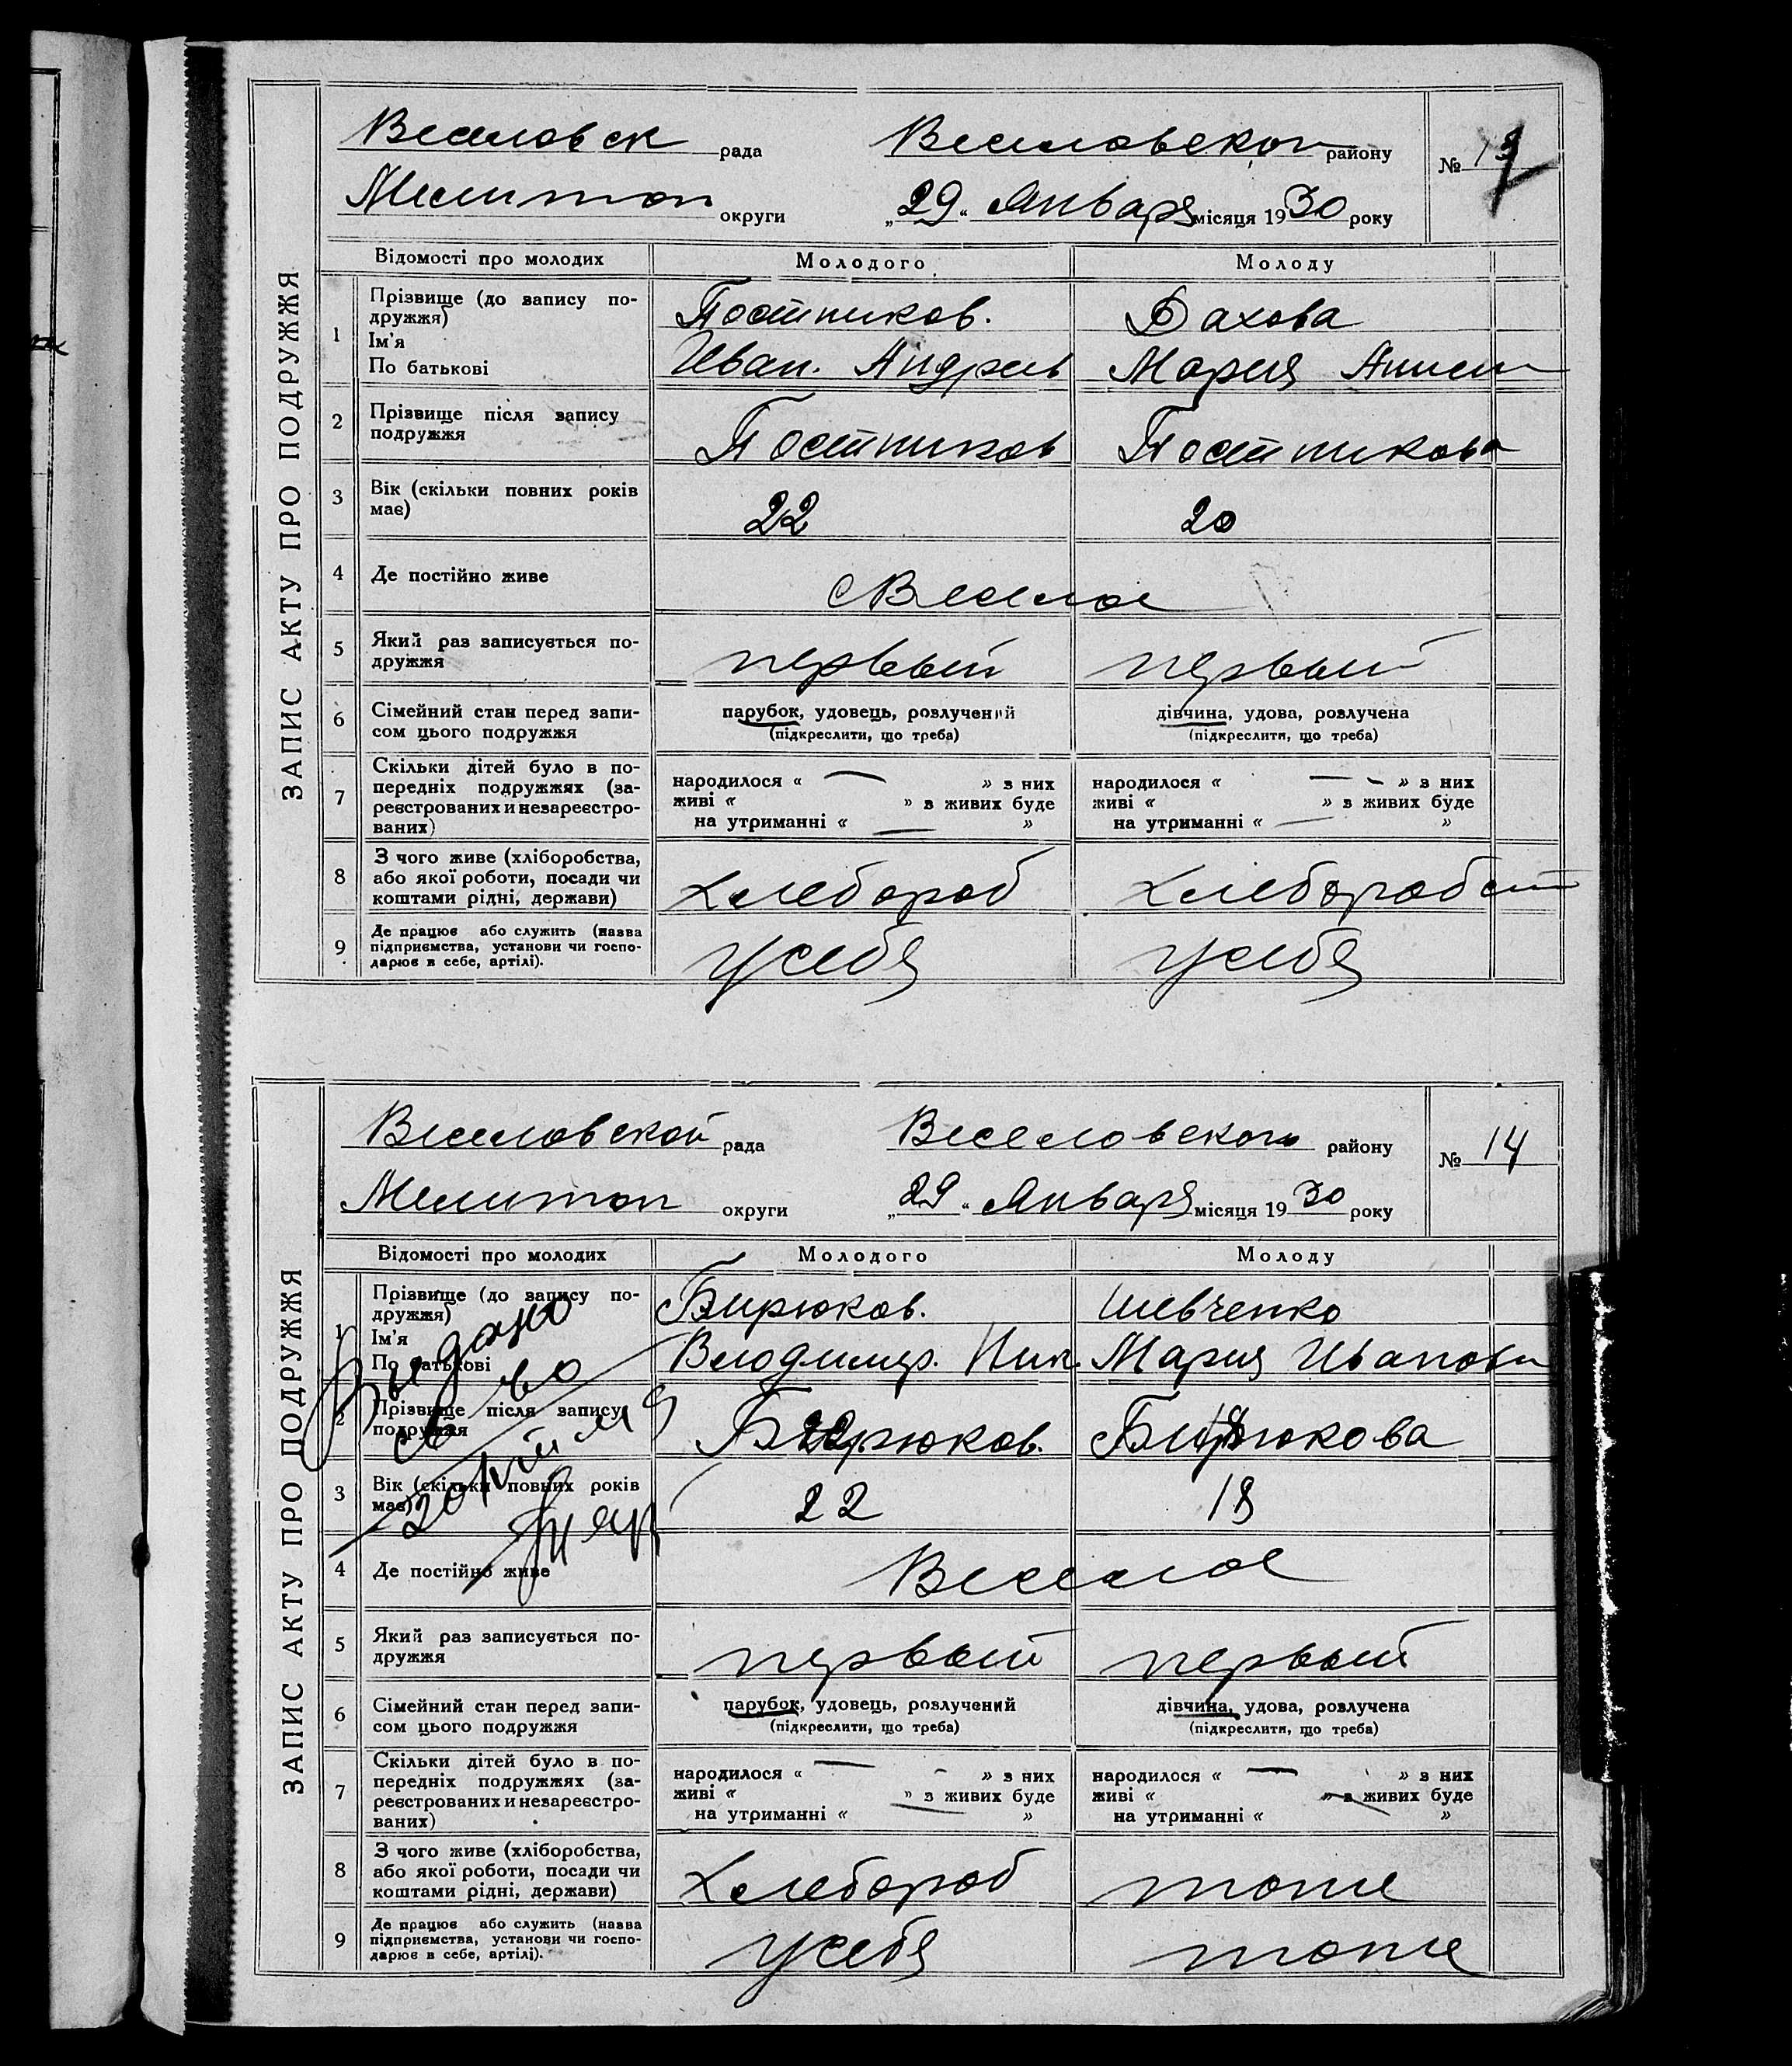 ЗАПИС АКТУ ПРО ПОДРУЖЖЯ
Веселовск рада Веселовского району № 13
Мелитоп округи „29“ Января місяця 1930 року
Відомості про молодих Молодого Молоду
1 Прізвище (до запису по-
дружжя) Постников. Дахова
Ім'я
По батькові Иван. Андреев Мария Анисим
2 Прізвище після запису
подружжя Постников Постникова
3 Вік (скільки повних років
має) 22 20
4 Де постійно живе с Веселое
5 Який раз записується по-
дружжя первый первый
6 Сімейний стан перед запи-
сом цього подружжя
парубок, удовець, розлучений дівчина, удова, розлучена
(підкреслити, що треба) (підкреслити, що треба)
7 Скільки дітей було в по-
передніх подружжях (за-
реєстрованих и незареєстро-
ваних)
народилося « — » з них народилося « — - » з них
живі « » з живих буде живі « » з живих буде
на утриманні « — » на утриманні « — »
8 З чого живе (хліборобства,
або якої роботи, посади чи
коштами рідні, держави) хлебороб хлеборобст
9 Де працює або служить (назва
підприємства, установи чи госпо-
дарює в себе, артілі). у себя у себя
ЗАПИС АКТУ ПРО ПОДРУЖЖЯ
Веселовской рада Веселовского району № 14
Мелитоп округи „29“ Января місяця 1930 року
Відомості про молодих Молодого Молоду
1 Прізвище (до запису по-
дружжя) Бирюков. Шевченко
Ім'я
По батькові Владимир. Ник. Мария Иванови
Выдано
св во
2 Прізвище після запису
подружжя Бирюков. Бирюкова
3 Вік (скільки повних років
має) 22 18
4 Де постійно живе Веселое
5 Який раз записується по-
дружжя первый первый
6 Сімейний стан перед запи-
сом цього подружжя
парубок, удовець, розлучений дівчина, удова, розлучена
(підкреслити, що треба) (підкреслити, що треба)
7 Скільки дітей було в по-
передніх подружжях (за-
реєстрованих и незареєстро-
ваних)
народилося « — » з них народилося « — » з них
живі « » з живих буде живі « » з живих буде
на утриманні « » на утриманні « »
8 З чого живе (хліборобства,
або якої роботи, посади чи
коштами рідні, держави) хлебороб тоже
9 Де працює або служить (назва
підприємства, установи чи госпо-
дарює в себе, артілі). у себя тоже